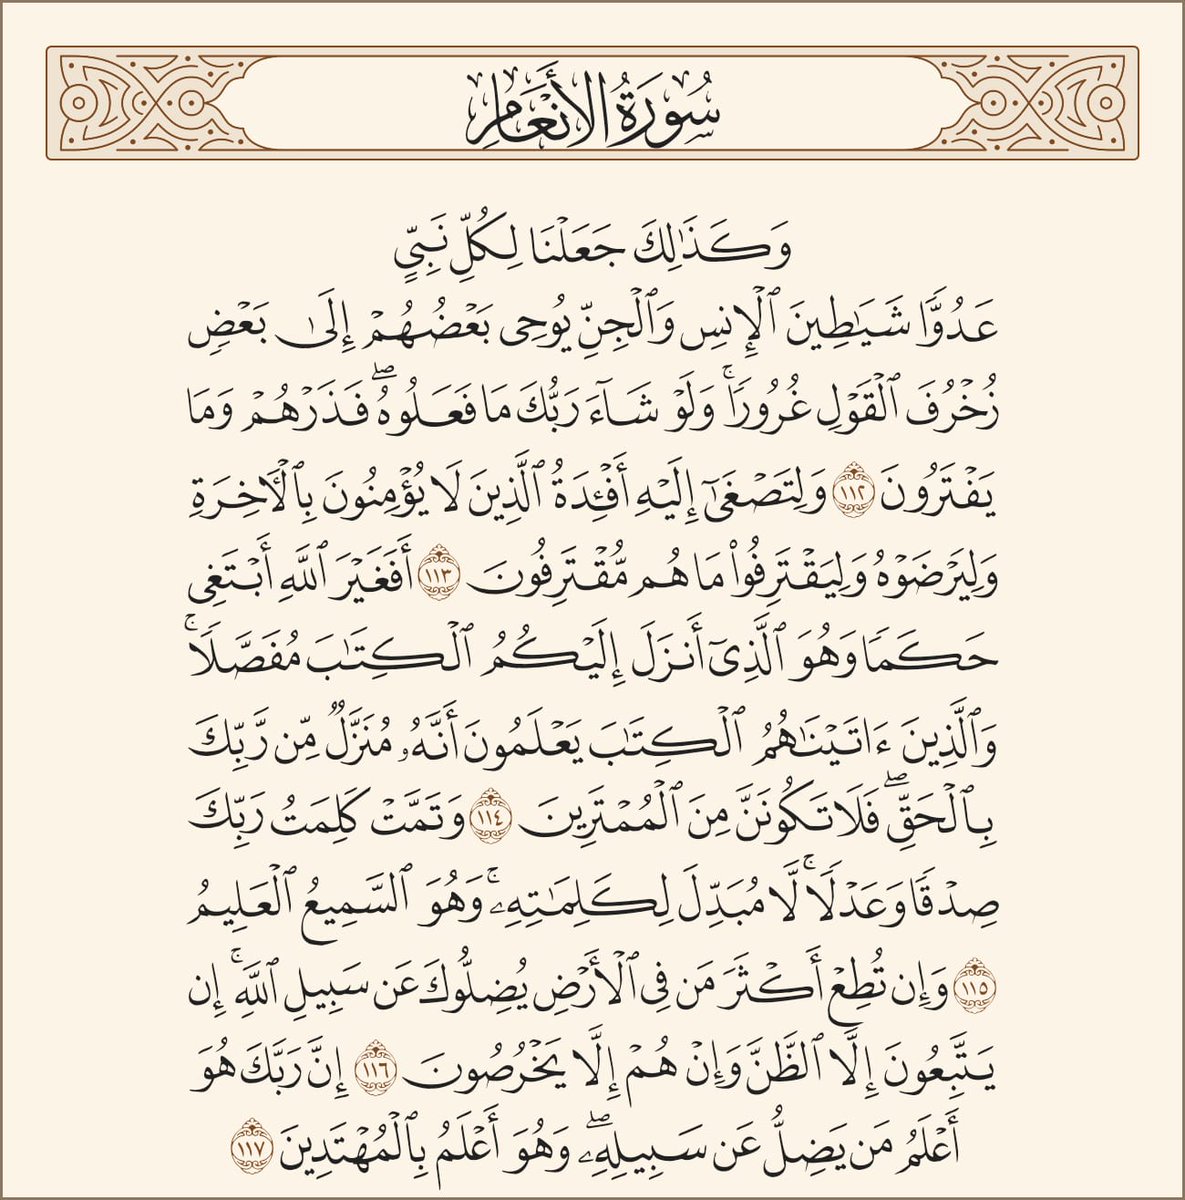 سُورَةُ الأَنْعَامِ
وَكَذَٰلِكَ جَعَلۡنَا لِكُلِّ نَبِيٍّ
عَدُوّٗا شَيَٰطِينَ ٱلۡإِنسِ وَٱلۡجِنِّ يُوحِي بَعۡضُهُمۡ إِلَىٰ بَعۡضٖ
زُخۡرُفَ ٱلۡقَوۡلِ غُرُورٗاۚ وَلَوۡ شَآءَ رَبُّكَ مَا فَعَلُوهُۖ فَذَرۡهُمۡ وَمَا
يَفۡتَرُونَ ١١٢ وَلِتَصۡغَىٰٓ إِلَيۡهِ أَفۡـِٔدَةُ ٱلَّذِينَ لَا يُؤۡمِنُونَ بِٱلۡأٓخِرَةِ
وَلِيَرۡضَوۡهُ وَلِيَقۡتَرِفُواْ مَا هُم مُّقۡتَرِفُونَ ١١٣ أَفَغَيۡرَ ٱللَّهِ أَبۡتَغِي
حَكَمٗا وَهُوَ ٱلَّذِيٓ أَنزَلَ إِلَيۡكُمُ ٱلۡكِتَٰبَ مُفَصَّلٗاۚ
وَٱلَّذِينَ ءَاتَيۡنَٰهُمُ ٱلۡكِتَٰبَ يَعۡلَمُونَ أَنَّهُۥ مُنَزَّلٞ مِّن رَّبِّكَ
بِٱلۡحَقِّۖ فَلَا تَكُونَنَّ مِنَ ٱلۡمُمۡتَرِينَ ١١٤ وَتَمَّتۡ كَلِمَتُ رَبِّكَ
صِدۡقٗا وَعَدۡلٗاۚ لَّا مُبَدِّلَ لِكَلِمَٰتِهِۦۚ وَهُوَ ٱلسَّمِيعُ ٱلۡعَلِيمُ
١١٥ وَإِن تُطِعۡ أَكۡثَرَ مَن فِي ٱلۡأَرۡضِ يُضِلُّوكَ عَن سَبِيلِ ٱللَّهِۚ إِن
يَتَّبِعُونَ إِلَّا ٱلظَّنَّ وَإِنۡ هُمۡ إِلَّا يَخۡرُصُونَ ١١٦ إِنَّ رَبَّكَ هُوَ
أَعۡلَمُ مَن يَضِلُّ عَن سَبِيلِهِۦۖ وَهُوَ أَعۡلَمُ بِٱلۡمُهۡتَدِينَ ١١٧